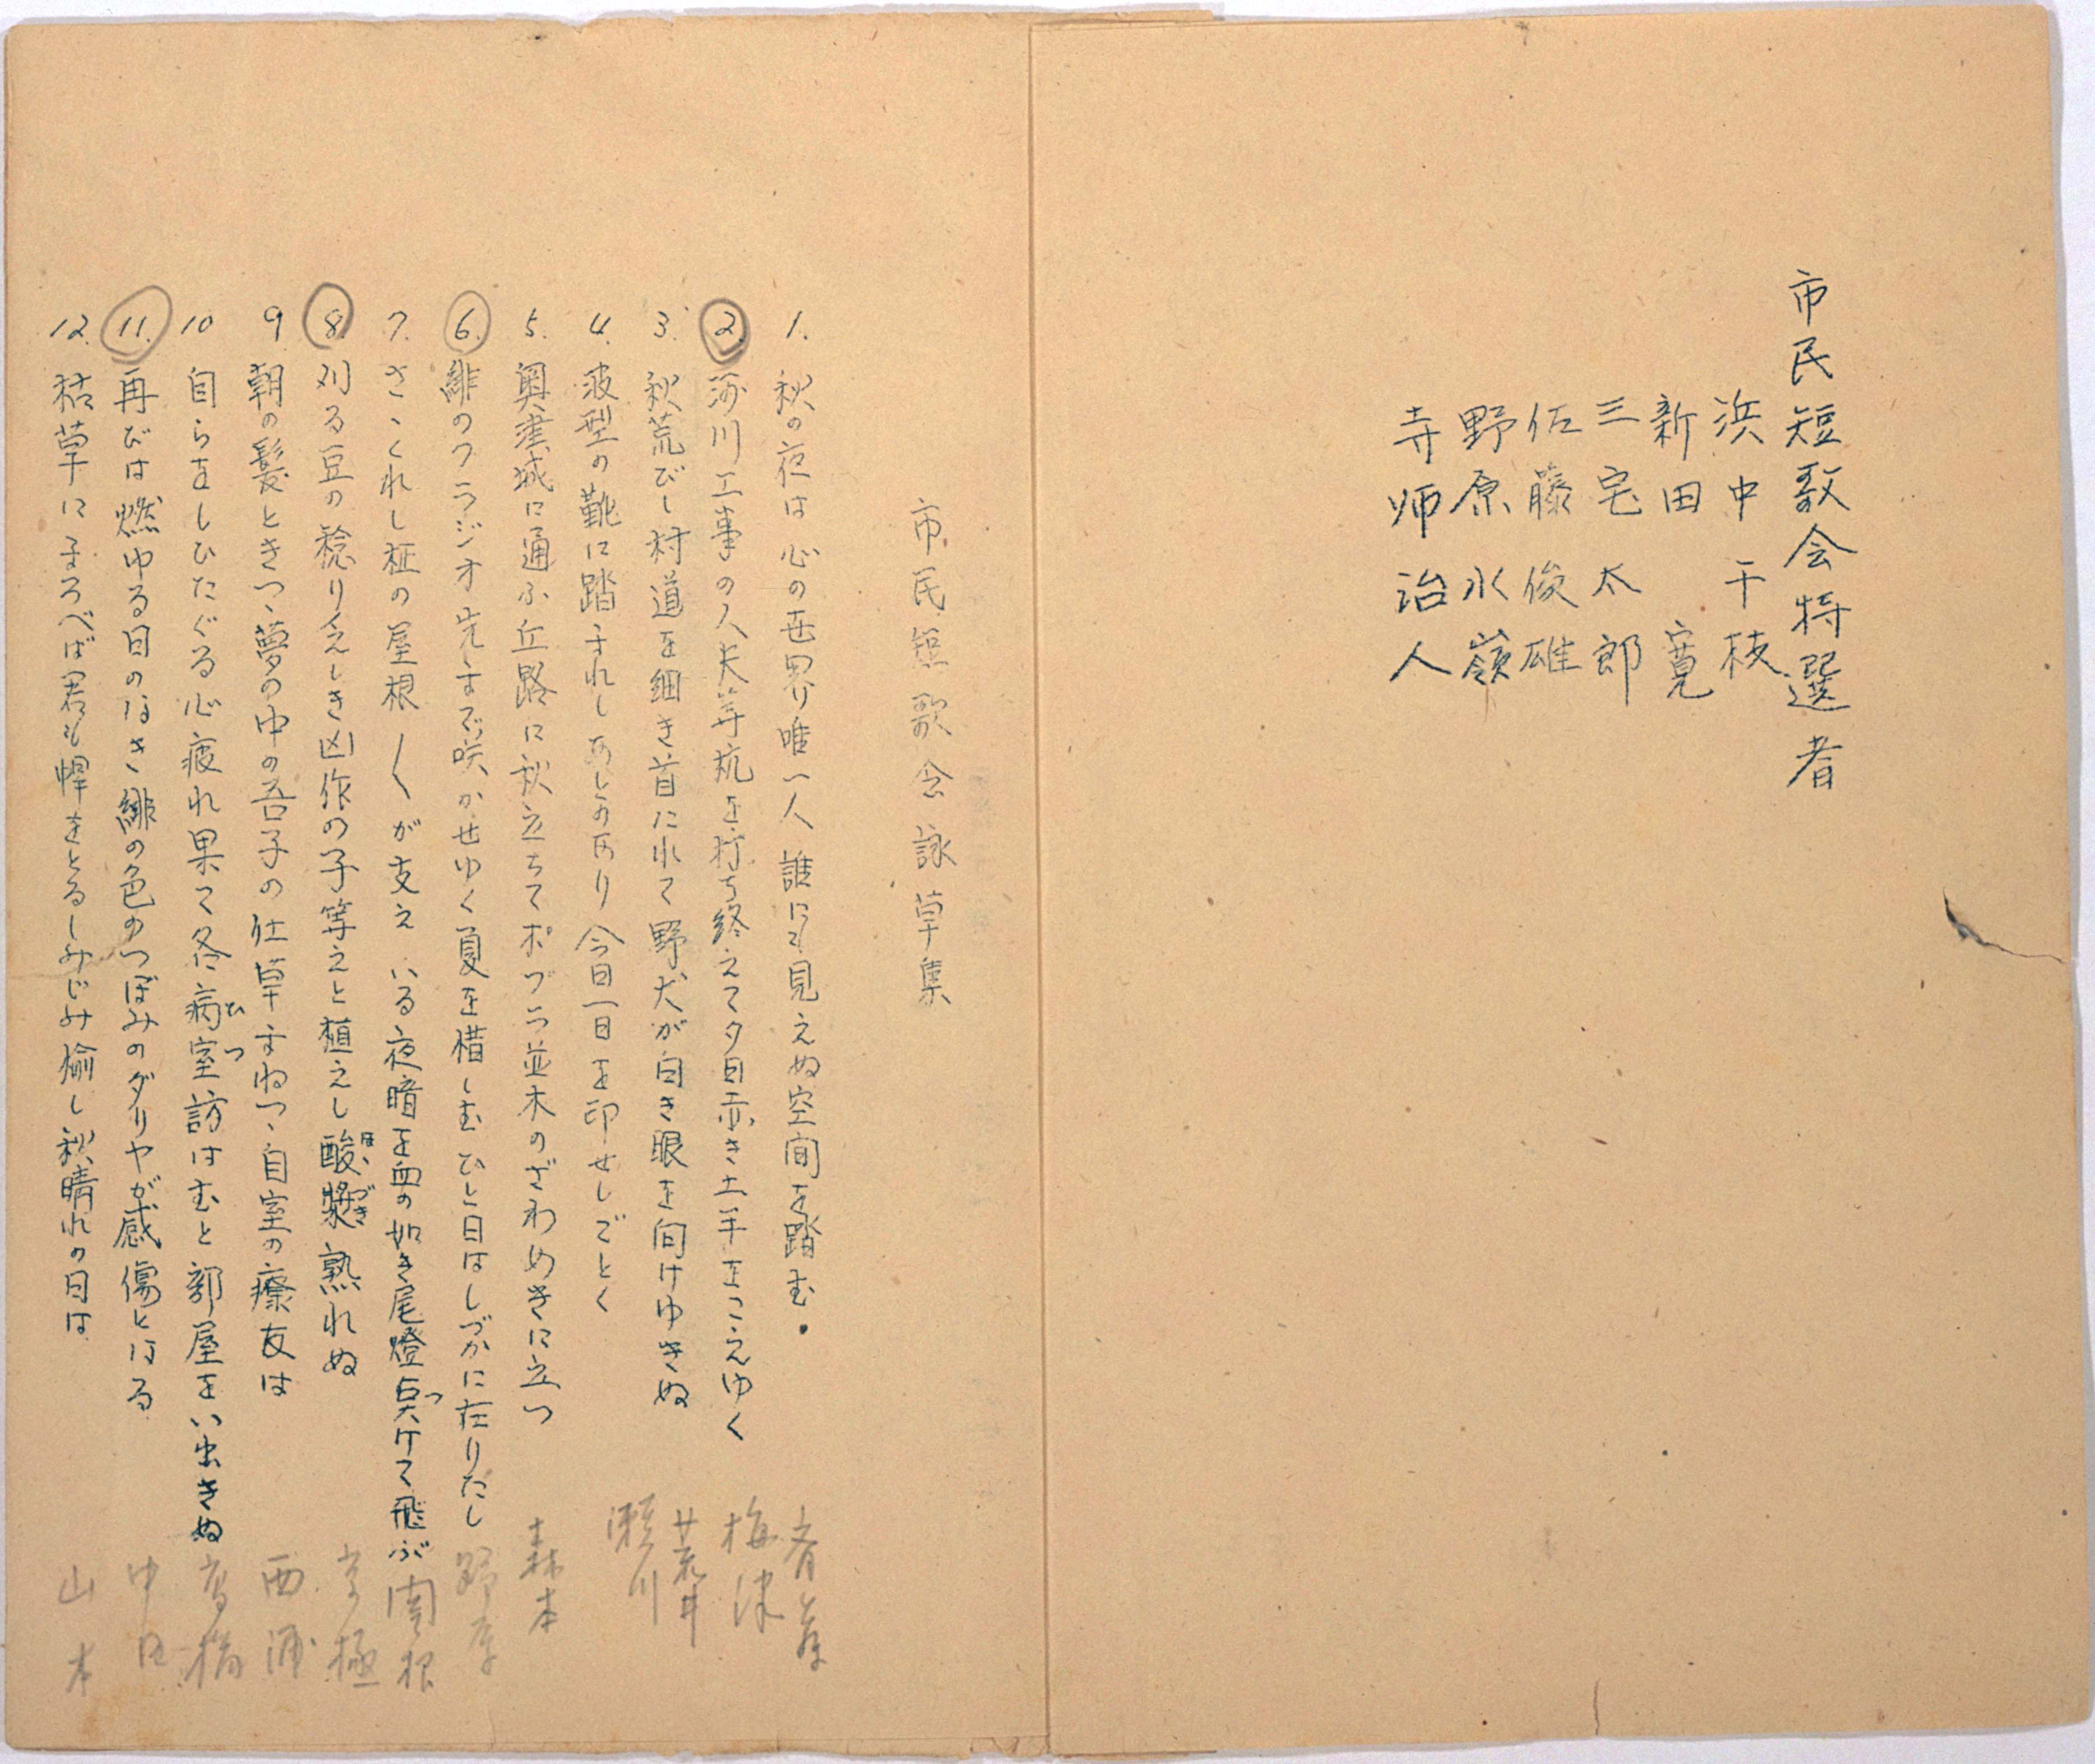 市民短歌会特選者
浜中千枝
新田寛
三宅太郎
佐藤俊雄
野原水嶺
寺师治人
市民短歌会詠草集
1. 秋の夜は心の世界り唯一人誰にも見えぬ空間を踏む・
2. 河川工事の人夫等杭を打ち終えて夕日赤き土手をこえゆく
3. 秋荒びし村道を細き首にれて野犬が白き眼を向けゆきぬ
4. 波型の靴に踏まれしあとのあり今日一日を印せしごとく
5. 奥津城に通ふ丘路に秋立ちてポプラ並木のざわめきに立つ
6. 緋のクラジオ先まで咲かせゆく夏を惜しむひと日はしづかに在りたし
7. さゝくれし柾の屋根〳〵が支えいる夜暗を血の如き尾燈点けて飛ぶ
8. 刈る豆の稔り乏しき凶作の子等えと植えし酸漿熟れぬ
9. 朝の髪ときつゝ夢の中の吾子の仕草まねつゝ自室の療友は
10 自らをしひたぐる心疲れ果て冬病室訪はむと部屋をい出きぬ
11. 再びは燃ゆる日のなき緋の色のつぼみのダリヤが感傷となる
12. 枯草にまろべば君も悍をとるしみじみ愉し秋晴れの日は
梅津
荒井
瀬川
森本
野原
関根
京極
西浦
高橋
中田
山本